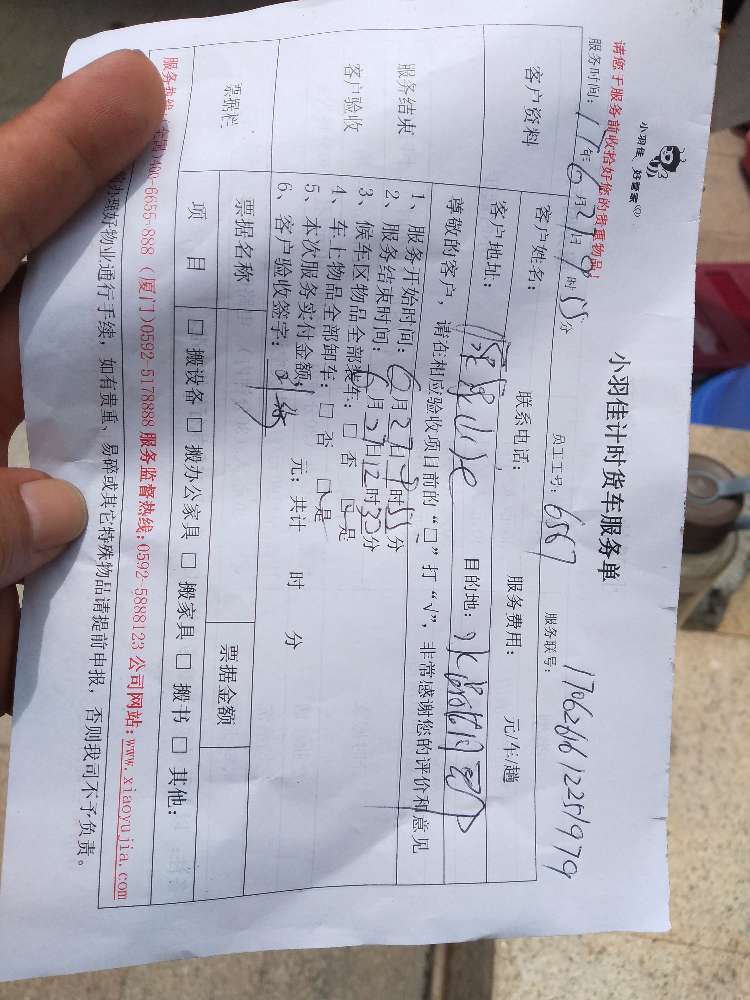 小羽佳 好管家
小羽佳计时货车服务单
请您于服务前收拾好您的贵重物品!
服务时间: 17年6月27日9时55分 员工工号: 6567 服务联号: 1706261612251979
客户资料
客户姓名: 联系电话: 服务费用: 元/车/趟
客户地址: 目的地:
服务结束
客户验收
尊敬的客户, 请在相应验收项目前的“□”打“√”, 非常感谢您的评价和意见
1、服务开始时间: 6月27日9时55分
2、服务结束时间: 6月27日12时30分
3、候车区物品全部装车: □ 否 □ 是
4、车上物品全部卸车: □ 否 □ 是
5、本次服务实付金额: 元; 共计 时 分
6、客户验收签字:
票据栏
票据名称 票据金额
项 目 □ 搬设备 □ 搬办公家具 □ 搬家具 □ 搬书 □ 其他:
服务热线: 400-6655-888 (厦门)0592-5178888 服务监督热线: 0592-5888123 公司网站: www.xiaoyujia.com
办理好物业通行手续, 如有贵重、易碎或其它特殊物品请提前申报, 否则我司不予负责。